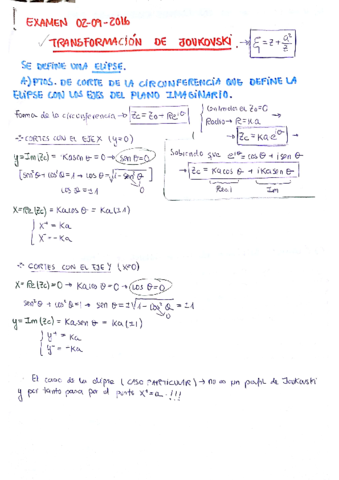 EXAMEN 02-09-2016
✓ TRANSFORMACIÓN DE JOUKOVSKI. → ξ = z + a²/z
SE DEFINE UNA ELIPSE.
A) PTOS. DE CORTE DE LA CIRCUNFERENCIA QUE DEFINE LA
ELIPSE CON LOS EJES DEL PLANO IMAGINARIO.
forma de la circunferencia → Zc = Z₀ + Re^iθ
Centrada en Z₀ = 0
Radio → R = Ka
→ Zc = Ka e^iθ
Sabiendo que e^iθ = cos θ + i sen θ
→ Zc = Ka cos θ + i Ka sen θ
Real Im
CORTES CON EL EJE X (y=0)
y = Im(Zc) = Ka sen θ = 0 → sen θ = 0
[sen²θ + cos²θ = 1 → cos θ = √1 - sen²θ
0
cos θ = ±1
X = Re(Zc) = Ka cos θ = Ka(±1)
X⁺ = Ka
X⁻ = -Ka
CORTES CON EL EJE Y (x=0)
X = Re(Zc) = 0 → Ka cos θ = 0 → cos θ = 0
sen²θ + cos²θ = 1 → sen θ = ±√1 - cos²θ = ±1
0
y = Im(Zc) = Ka sen θ = Ka(±1)
y⁺ = Ka
y⁻ = -Ka
El caso de la elipse (CASO PARTICULAR) → no es un perfil de Joukovski
y por tanto pasa por el punto X⁺ = a !!!